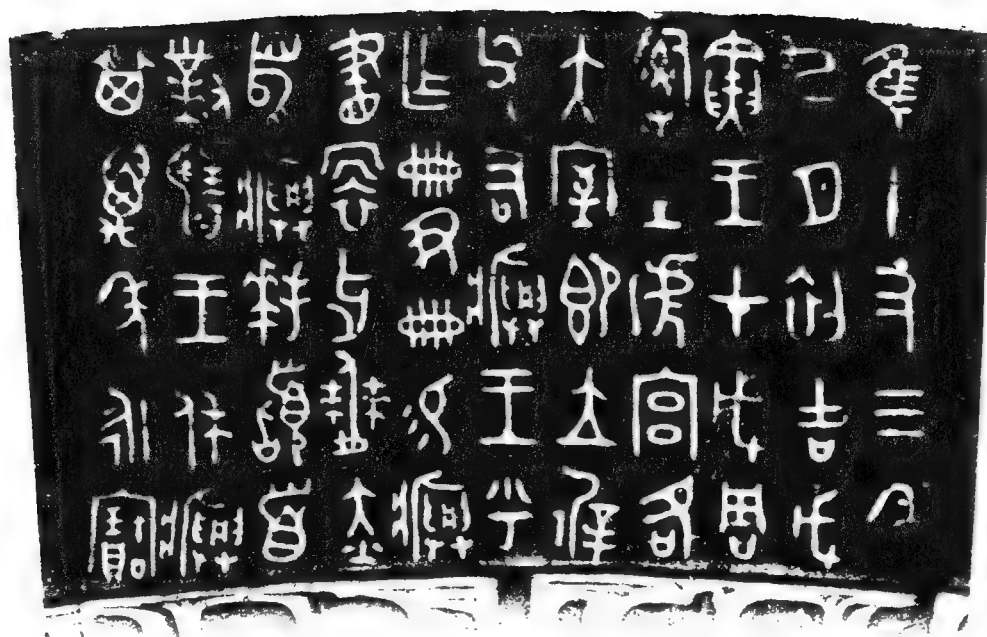 隹十又三年
九月初吉戊
寅王才成周
𤔲土淲宮各
大室即立徲
父右𤼈王乎
乍冊尹冊易𤼈
畫靳牙僰赤
舄𤼈拜𩒨首
對揚王休𤼈
其萬年永寶